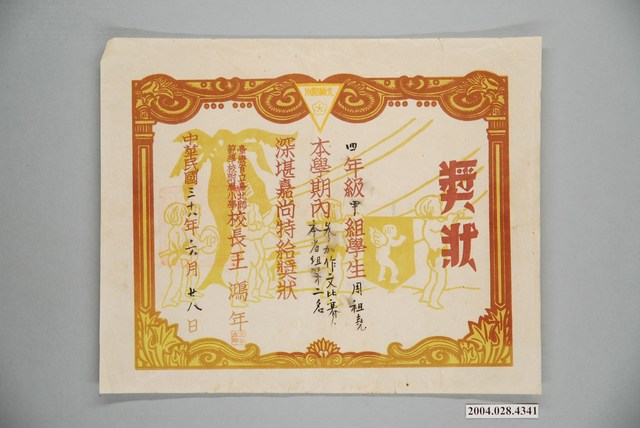 獎狀
四年級甲組學生周祖堯
本學期內參加作文比賽
本省組第二名
深堪嘉尚特給獎狀
臺灣省立臺北師
範學校附屬小學
校長王鴻年
中華民國三十八年六月廿八日
2004.028.4341